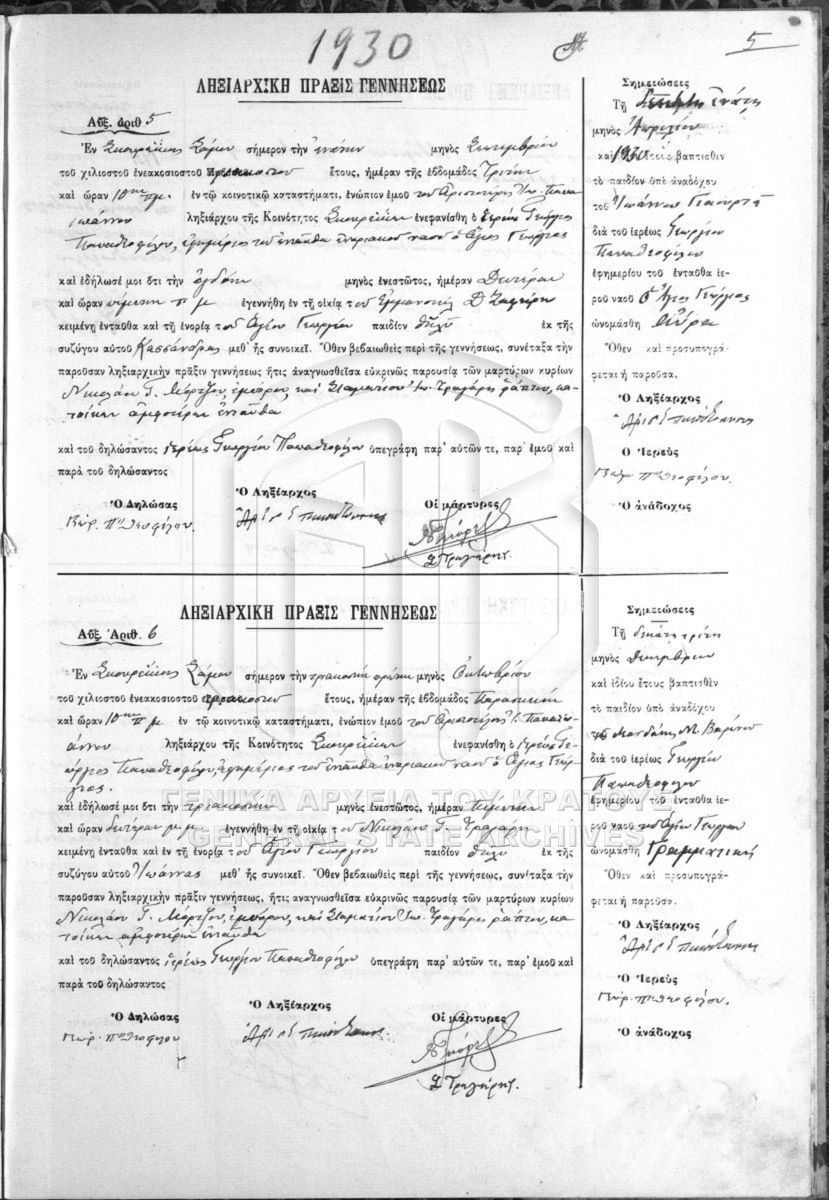 1930
5
ΛΗΞΙΑΡΧΙΚΗ ΠΡΑΞΙΣ ΓΕΝΝΗΣΕΩΣ
Αὔξ. ἀριθ 5
Ἐν Σκουρέϊκης Σάμου σήμερον τὴν ἐνάτην μηνὸς Σεπτεμβρίου
τοῦ χιλιοστοῦ ἐνεακοσιοστοῦ τριακοστοῦ ἔτους, ἡμέραν τῆς ἑβδομάδος Τρίτην
καὶ ὥραν 10ην πμ. ἐν τῷ κοινοτικῷ καταστήματι, ἐνώπιον ἐμοῦ τοῦ Ἀριστοτέλους Παπα
ϊωάννου ληξιάρχου τῆς Κοινότητος Σκουρέϊκων ἐνεφανίσθη ὁ ἱερεὺς Γεώργιος
Παπαθεοφίλου, ἐφημέριος τοῦ ἐνταῦθα ἐνοριακοῦ ναοῦ ὁ Ἅγιος Γεώργιος
καὶ ἐδήλωσέ μοι ὅτι τὴν ὀγδόην μηνὸς ἐνεστῶτος, ἡμέραν Δευτέραν
καὶ ὥραν π μ ἐγεννήθη ἐν τῇ οἰκίᾳ τοῦ Ἐμμανουὴλ Δ Ζαφείρη
κειμένῃ ἐνταῦθα καὶ τῇ ἐνορίᾳ τοῦ Ἁγίου Γεωργίου παιδίον θῆλυ ἐκ τῆς
συζύγου αὐτοῦ Κασσάνδρας μεθ' ἧς συνοικεῖ. Ὅθεν βεβαιωθεὶς περὶ τῆς γεννήσεως, συνέταξα τὴν
παροῦσαν ληξιαρχικὴν πρᾶξιν γεννήσεως ἥτις ἀναγνωσθεῖσα εὐκρινῶς παρουσίᾳ τῶν μαρτύρων κυρίων
Νικολάου Γ. Μόρτζου, ἐμπόρου, καὶ Σταματίου Ἰω. Τραγάρη ῥάπτου, κα-
τοίκων ἀμφοτέρων ἐνταῦθα
καὶ τοῦ δηλώσαντος ἱερέως Γεωργίου Παπαθεοφίλου ὑπεγράφη παρ' αὐτῶν τε, παρ' ἐμοῦ καὶ
παρὰ τοῦ δηλώσαντος
Ὁ Δηλώσας
Ὁ Ληξίαρχος
Οἱ μάρτυρες
Σ Τραγάρης.
Σημειώσεις
Τῇ ἐνάτῃ
μηνὸς Ἀπριλίου
καὶ 1930 ἔτους βαπτισθὲν
τὸ παιδίον ὑπὸ ἀναδόχου
τοῦ Ἰωάννου
διὰ τοῦ ἱερέως Γεωργίου
Παπαθεοφίλου
ἐφημερίου τοῦ ἐνταῦθα ἱε-
ροῦ ναοῦ ὁ Ἅγιος Γεώργιος
ὠνομάσθη
Ὅθεν καὶ προσυπογρά-
φεται ἡ παροῦσα.
Ὁ Ληξίαρχος
Ὁ Ἱερεὺς
Ὁ ἀνάδοχος
ΛΗΞΙΑΡΧΙΚΗ ΠΡΑΞΙΣ ΓΕΝΝΗΣΕΩΣ
Αὔξ. Ἀριθ. 6
Ἐν Σκουρέϊκης Σάμου σήμερον τὴν τριακοστὴν πρώτην μηνὸς Ὀκτωβρίου
τοῦ χιλιοστοῦ ἐνεακοσιοστοῦ τριακοστοῦ ἔτους, ἡμέραν τῆς ἑβδομάδος Παρασκευὴν
καὶ ὥραν 10ην π μ ἐν τῷ κοινοτικῷ καταστήματι, ἐνώπιον ἐμοῦ τοῦ Ἀριστοτέλους Παπαϊω-
άννου ληξιάρχου τῆς Κοινότητος Σκουρέϊκων ἐνεφανίσθη ὁ ἱερεὺς Γε-
ώργιος Παπαθεοφίλου, ἐφημέριος τοῦ ἐνταῦθα ἐνοριακοῦ ναοῦ ὁ Ἅγιος Γεώρ-
γιος.
καὶ ἐδήλωσέ μοι ὅτι τὴν τριακοστὴν μηνὸς ἐνεστῶτος, ἡμέραν Πέμπτην
καὶ ὥραν δευτέραν μ.μ ἐγεννήθη ἐν τῇ οἰκίᾳ τοῦ Νικολάου Γ. Τραγάρη
κειμένῃ ἐνταῦθα καὶ ἐν τῇ ἐνορίᾳ τοῦ Ἁγίου Γεωργίου παιδίον θῆλυ ἐκ τῆς
συζύγου αὐτοῦ Ἰωάννας μεθ' ἧς συνοικεῖ. Ὅθεν βεβαιωθεὶς περὶ τῆς γεννήσεως, συνέταξα τὴν
παροῦσαν ληξιαρχικὴν πρᾶξιν γεννήσεως, ἥτις ἀναγνωσθεῖσα εὐκρινῶς παρουσίᾳ τῶν μαρτύρων κυρίων
Νικολάου Γ. Μόρτζου, ἐμπόρου, καὶ Σταματίου Ἰω. Τραγάρη ῥάπτου, κα-
τοίκων ἀμφοτέρων ἐνταῦθα
καὶ τοῦ δηλώσαντος ἱερέως Γεωργίου Παπαθεοφίλου ὑπεγράφη παρ' αὐτῶν τε, παρ' ἐμοῦ καὶ
παρὰ τοῦ δηλώσαντος
Ὁ Δηλώσας
Ὁ Ληξίαρχος
Οἱ μάρτυρες
Σ Τραγάρης.
Σημειώσεις
Τῇ δεκάτῃ τρίτῃ
μηνὸς Δεκεμβρίου
καὶ ἰδίου ἔτους βαπτισθὲν
τὸ παιδίον ὑπὸ ἀναδόχου
διὰ τοῦ ἱερέως Γεωργίου
Παπαθεοφίλου
ἐφημερίου τοῦ ἐνταῦθα ἱε-
ροῦ ναοῦ τοῦ Ἁγίου Γεωργίου
ὠνομάσθη Γραμματική
Ὅθεν καὶ προσυπογρά-
φεται ἡ παροῦσα.
Ὁ Ληξίαρχος
Ὁ Ἱερεὺς
Ὁ ἀνάδοχος
ΓΕΝΙΚΑ ΑΡΧΕΙΑ ΤΟΥ ΚΡΑΤΟΥΣ
GENERAL STATE ARCHIVES